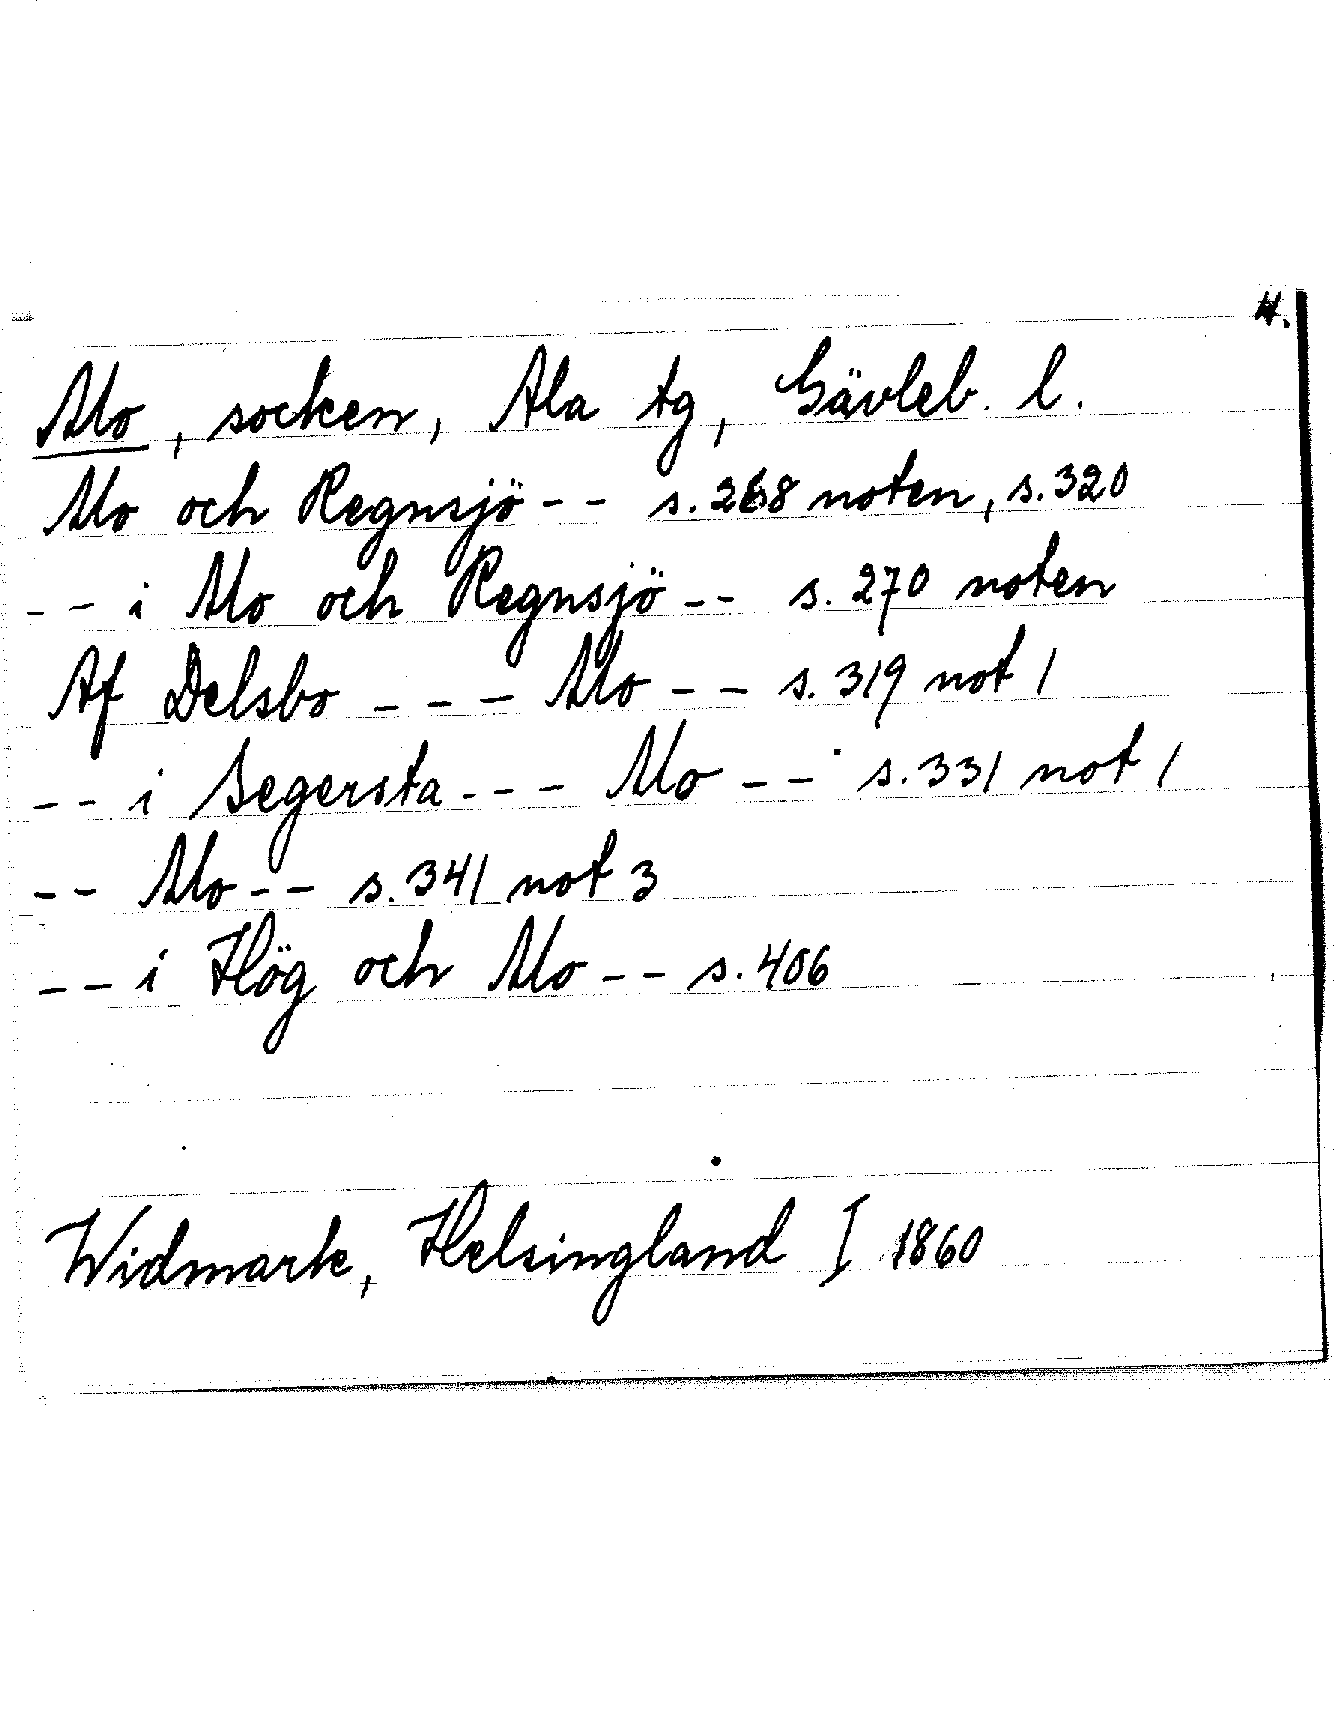 4.
Mo, socken, Ala tg, Gävleb. l.
Mo och Regnsjö -- s. 268 noten, s. 320
-- i Mo och Regnsjö -- s. 270 noten
Af Delsbo --- Mo -- s. 319 not 1
-- i Segersta --- Mo -- s. 331 not 1
-- Mo -- s. 341 not 3
-- i Hög och Mo -- s. 406
Widmark, Helsingland I 1860